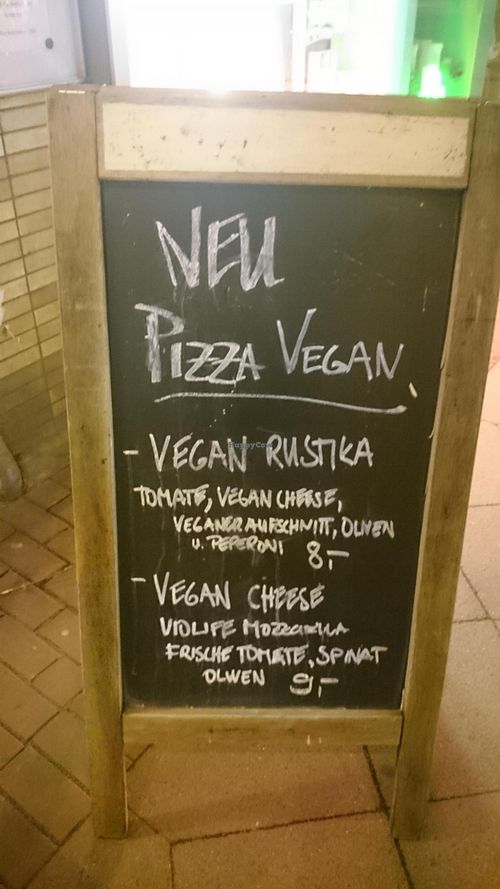 NEU
PIZZA VEGAN
- VEGAN RUSTIKA
TOMATE, VEGAN CHEESE,
VEGANER AUFSCHNITT, OLIVEN
u. PEPERONI 8,-
- VEGAN CHEESE
VIOLIFE MOZZARELLA
FRISCHE TOMATE, SPINAT
OLIVEN 9,-
HappyCow